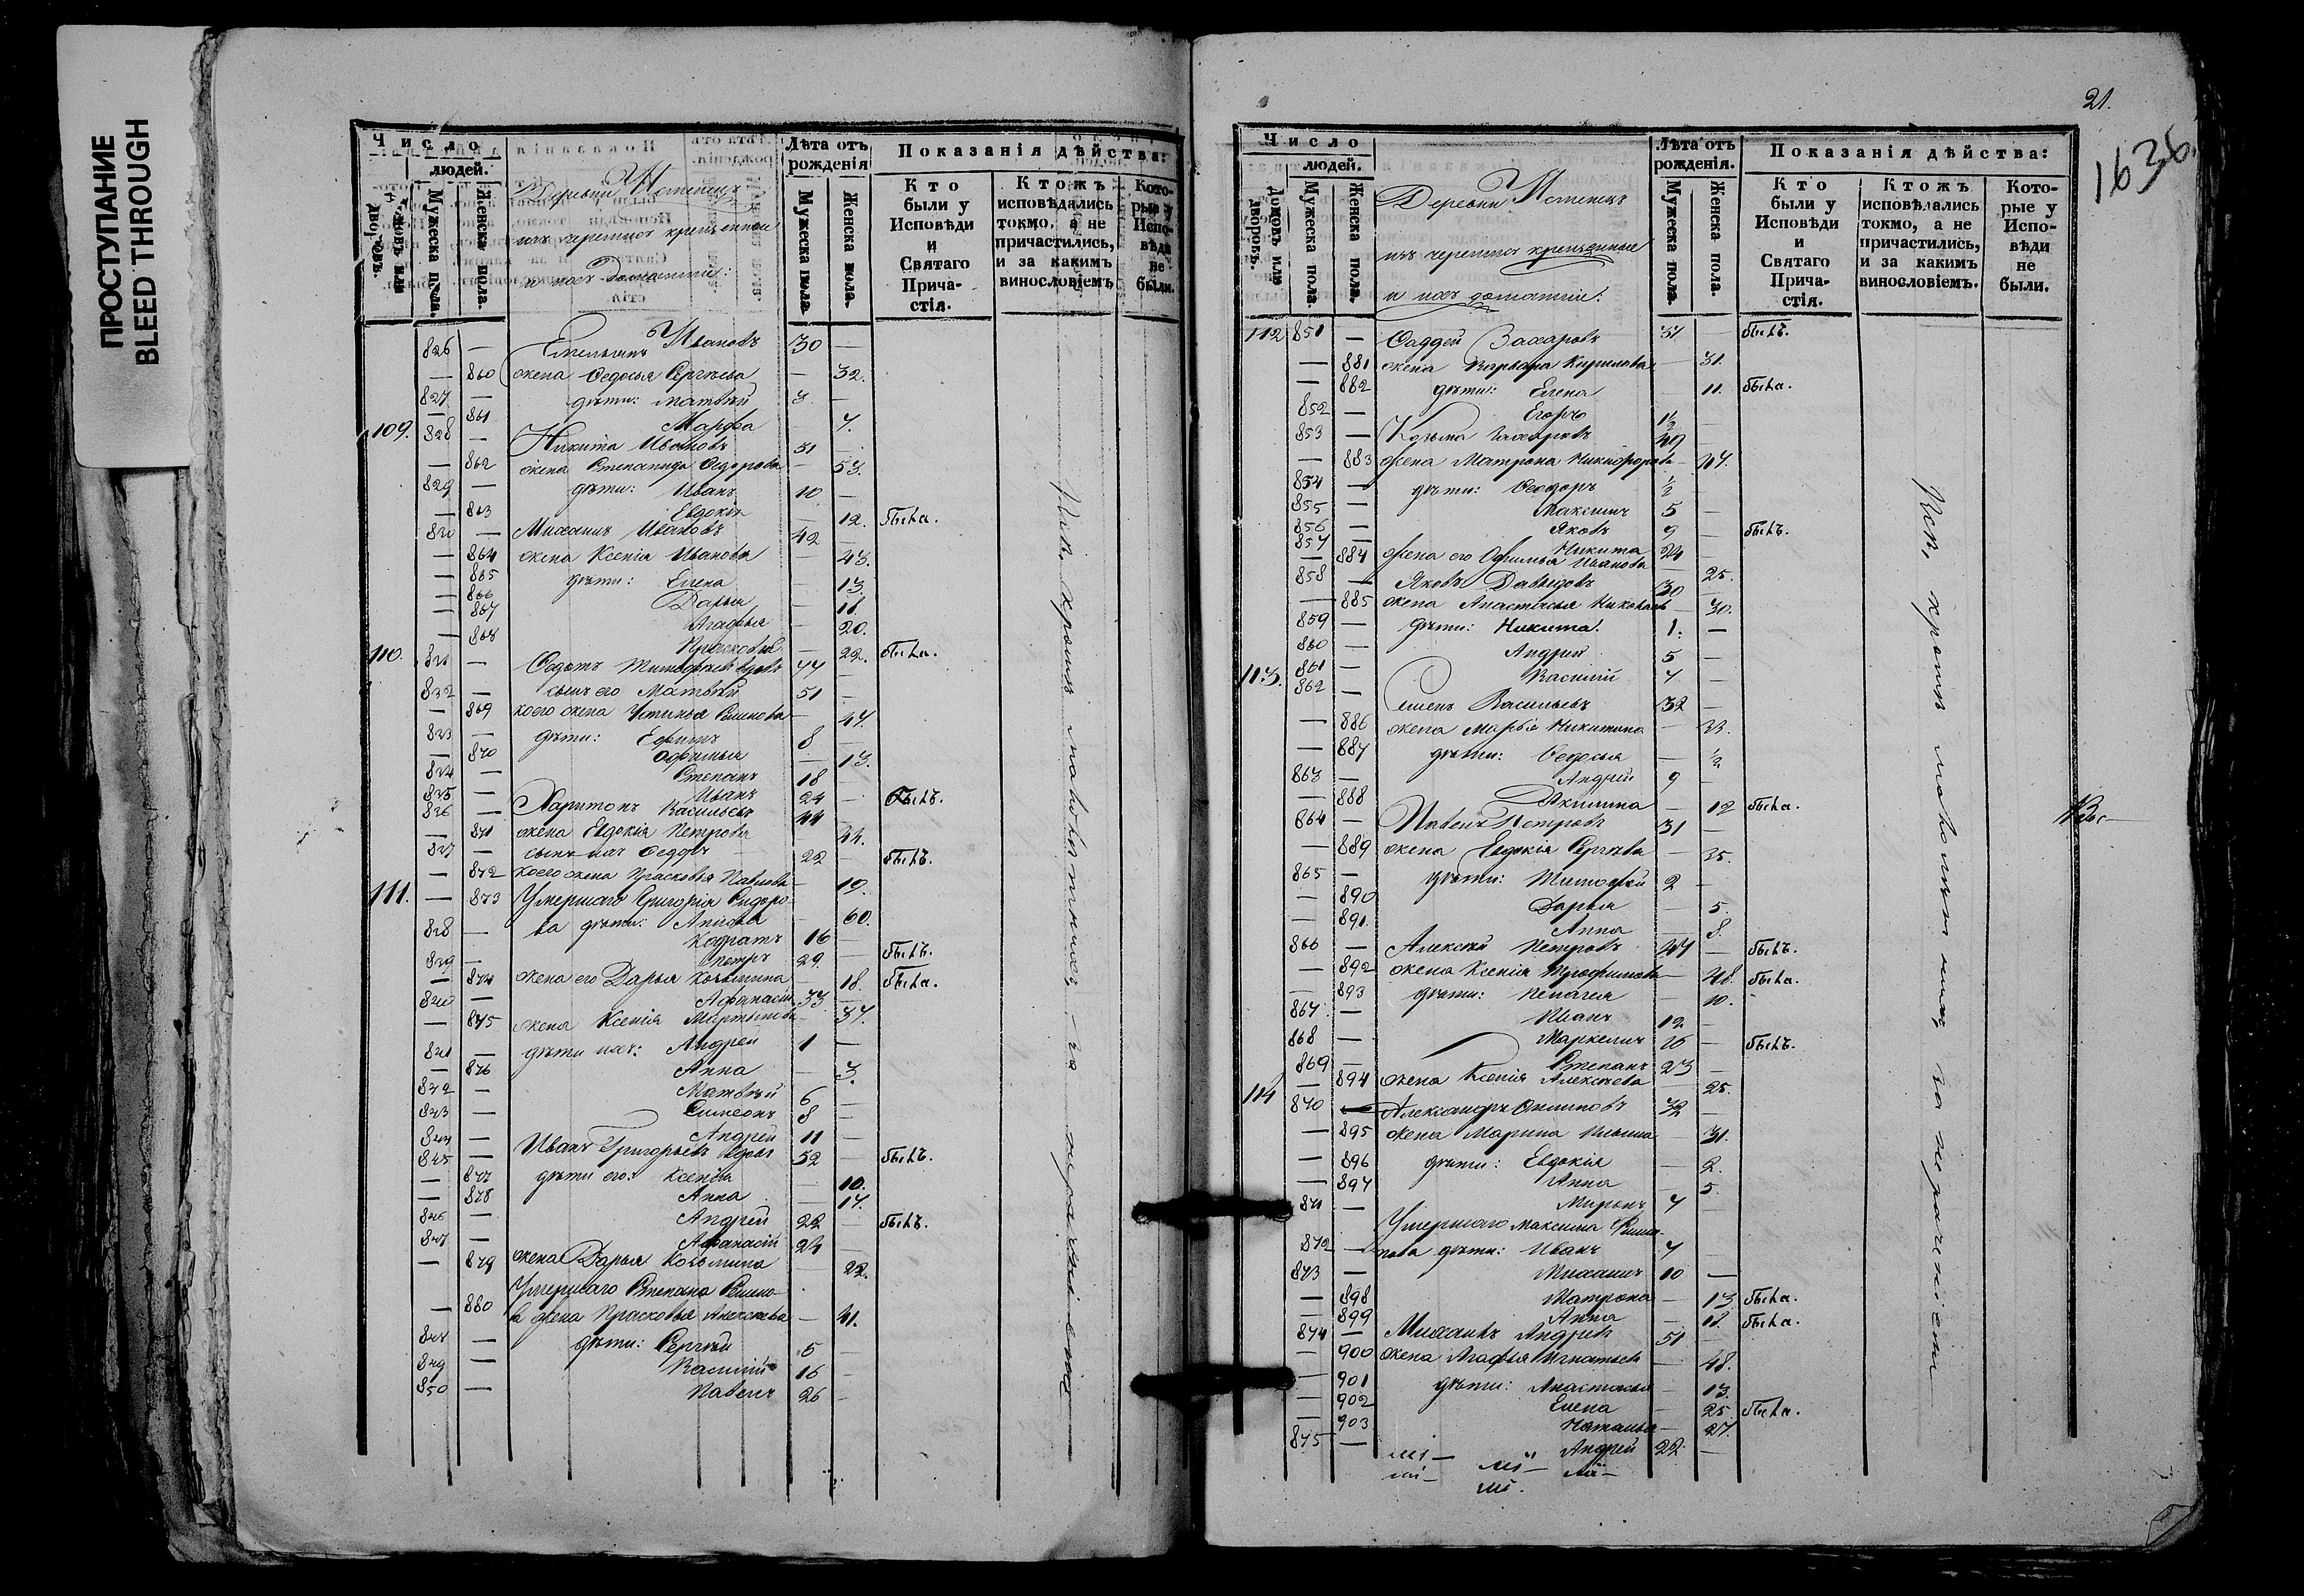 ПРОСТУПАНИЕ
BLEED THROUGH
Число
людей.
домовъ или дворовъ.
Мужеска пола.
Женска пола.
Деревни Истенецъ
изъ черемисъ крещенные
и ихъ домашніе:
Лѣта отъ рожденія
Мужеска пола.
Женска пола.
Показанія дѣйства:
Кто были у Исповѣди и Святаго Прича-стія.
Ктожъ исповѣдались токмо, а не причастились, и за какимъ винословіемъ
Кото-рые у Испо-вѣди не были.
826 — Емельянъ Ивановъ 30 —
— 860 жена Федосья Сергѣева — 32.
827 — дѣти: Матвѣй 3 —
— 861 Марфа 7.
109. 828 — Никита Ивановъ 51
— 862 жена Степанида Федорова — 53.
829 — дѣти: Иванъ 10 —
— 863 Евдокія — 12. была.
830 — Михаилъ Ивановъ 42
— 864 жена Ксенія Иванова 43.
— 865 дѣти: Елена 13.
— 866 Дарья — 18
— 867 Агафья — 20.
— 868 Прасковья — 22. была.
110. 831 — Федотъ Тимофеевъ вдовъ 77 —
832 — сынъ его Матвѣй 51 —
— 869 коего жена Устинья Семенова — 47.
833 — дѣти: Ефимъ 8 —
— 870 Офимья — 13.
834 — Степанъ 18
835 — Иванъ 24 — былъ.
836 — Харитонъ Васильевъ 44
— 871 жена Евдокія Петрова 44.
837 — сынъ ихъ Федоръ 22 — былъ.
— 872 коего жена Прасковья Павлова — 19.
111. — 873 Умершаго Григорія Сидоро-
ва дѣти: Анисья 60.
838 — Кодратъ 16 —
839 — Петръ 29. былъ.
— 874 жена его Дарья Козьмина — 18. была.
840 — Афанасій 33 —
— 875 жена Ксенія Мартынова — 37.
841 — дѣти ихъ: Андрей 1 —
— 876 Анна — 3.
842 — Матвѣй 6 —
843 — Симеонъ 8 —
844 — Андрей 11 —
845 — Иванъ Григорьевъ вдовъ 52 — былъ.
— 877 дѣти его: Ксенія 10.
— 878 Анна — 17.
846 — Андрей 22 — былъ.
847 — Афанасій 24 —
— 879 жена Дарья Козьмина — 22.
Умершаго Степана Семено-
— 880 ва жена Прасковья Алексѣева — 41.
848 — дѣти: Сергѣй 5 —
849 — Василій 16 —
850 — Павелъ 26 —
21.
1636.
Число
людей.
домовъ или дворовъ.
Мужеска пола.
Женска пола.
Деревни Истенецъ
изъ черемисъ крещенные
и ихъ домашніе.
Лѣта отъ рожденія.
Мужеска пола.
Женска пола.
Показанія дѣйства:
Кто были у Исповѣди и Святаго Прича-стія.
Ктожъ исповѣдались токмо, а не причастились, и за какимъ винословіемъ.
Кото-рые у Испо-вѣди не были.
112 851 — Фаддей Захаровъ 31 былъ.
— 881 жена Варвара Кирилова — 31.
— 882 дѣти: Елена 11. была.
852 — Егоръ 1½
853 — Козьма Захаровъ 49
— 883 жена Матрона Никифорова — 47.
854 — дѣти: Феодоръ ½
855 — Максимъ 5 —
856 — Яковъ 9 былъ.
857 — Никита 24
— 884 жена его Офимья Иванова 25.
858 — Яковъ Давыдовъ 30 —
— 885 жена Анастасья — 30.
859 — дѣти: Никита. 1. —
860 — Андрей 5 —
113. 861 — Василій 7 —
862 — Семенъ Васильевъ 32 —
— 886 жена Марфа Никитина 33.
— 887 дѣти: Федосья — ½
863 — Андрей 9 —
— 888 Акилина — 12 была.
864 — Павелъ Петровъ 31 —
— 889 жена Евдокія Сергѣева — 35.
865 — дѣти: Тимофей 2 —
— 890 Дарья 5.
— 891. Анна — 8.
866 — Алексѣй Петровъ 47 — былъ.
— 892 жена Ксенія Трофимова — 48. была.
— 893 дѣти: Пелагея 10.
867 — Иванъ 12 —
868 — Маркелъ 16 — былъ.
869 — Степанъ 23 —
— 894 жена Ксенія Алексѣева 25.
114 870 — Александръ 32 —
— 895 жена Марина Ильина — 31.
— 896 дѣти: Евдокія — 2.
— 897 Анна — 5.
871 — Миронъ 7
Умершаго Максима Филип-
872 — пова дѣти: Иванъ 7 —
873 — Михаилъ 10 —
— 898 Матрона — 13 была.
— 899 Анна — 18. была.
874 — Михаилъ Андреевъ 51 —
— 900 жена Агафья Игнатьева — 48.
— 901 дѣти: Анастасья — 13.
— 902 Елена — 25. была.
— 903 Наталья — 27.
875 — Андрей 22 —